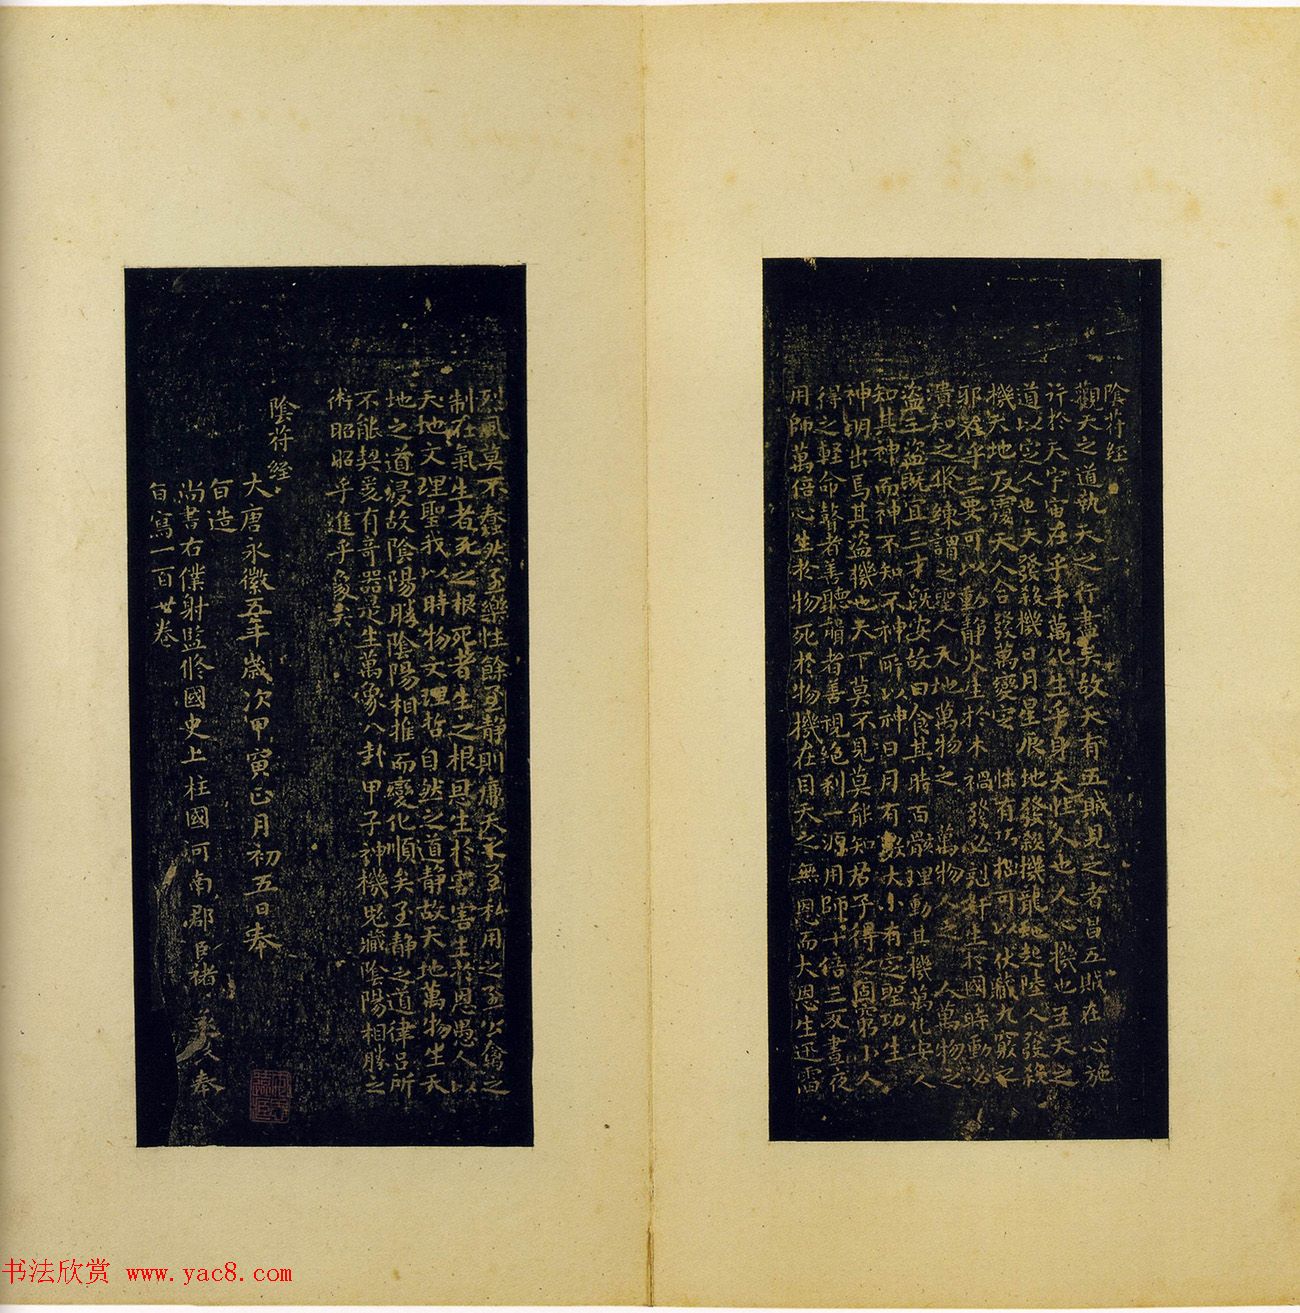 陰符經
觀天之道執天之行盡矣故天有五賊見之者昌五賊在心施
行於天宇宙在乎手萬化生乎身天性人也人心機也立天之
道以定人也天發殺機日月星辰地發殺機龍蛇起陸人發殺
機天地反覆天人合發萬變定性有巧拙可以伏藏九竅之
邪在乎三要可以動靜火生於木禍發必剋奸生於國時動必
潰知之修練謂之聖人天地萬物之盜萬物人之盜人萬物之
盜三盜既宜三才既安故曰食其時百骸理動其機萬化安人
知其神而神不知不神所以神日月有數大小有定聖功生
神明出焉其盜機也天下莫不見莫能知君子得之固窮小人
得之輕命瞽者善聽聾者善視絕利一源用師十倍三反晝夜
用師萬倍心生於物死於物機在目天之無恩而大恩生迅雷
烈風莫不蠢然至樂性餘至靜則廉天之至私用之至公禽之
制在氣生者死之根死者生之根恩生於害害生於恩愚人以
天地文理聖我以時物文理哲自然之道靜故天地萬物生天
地之道浸故陰陽勝陰陽相推而變化順矣至靜之道律呂所
不能契爰有奇器是生萬象八卦甲子神機鬼藏陰陽相勝之
術昭昭乎進乎象矣
陰符經
大唐永徽五年歲次甲寅正月初五日奉
旨造
尚書右僕射監修國史上柱國河南郡臣褚遂良奉
旨寫一百廿卷
书法欣赏 www.yac8.com